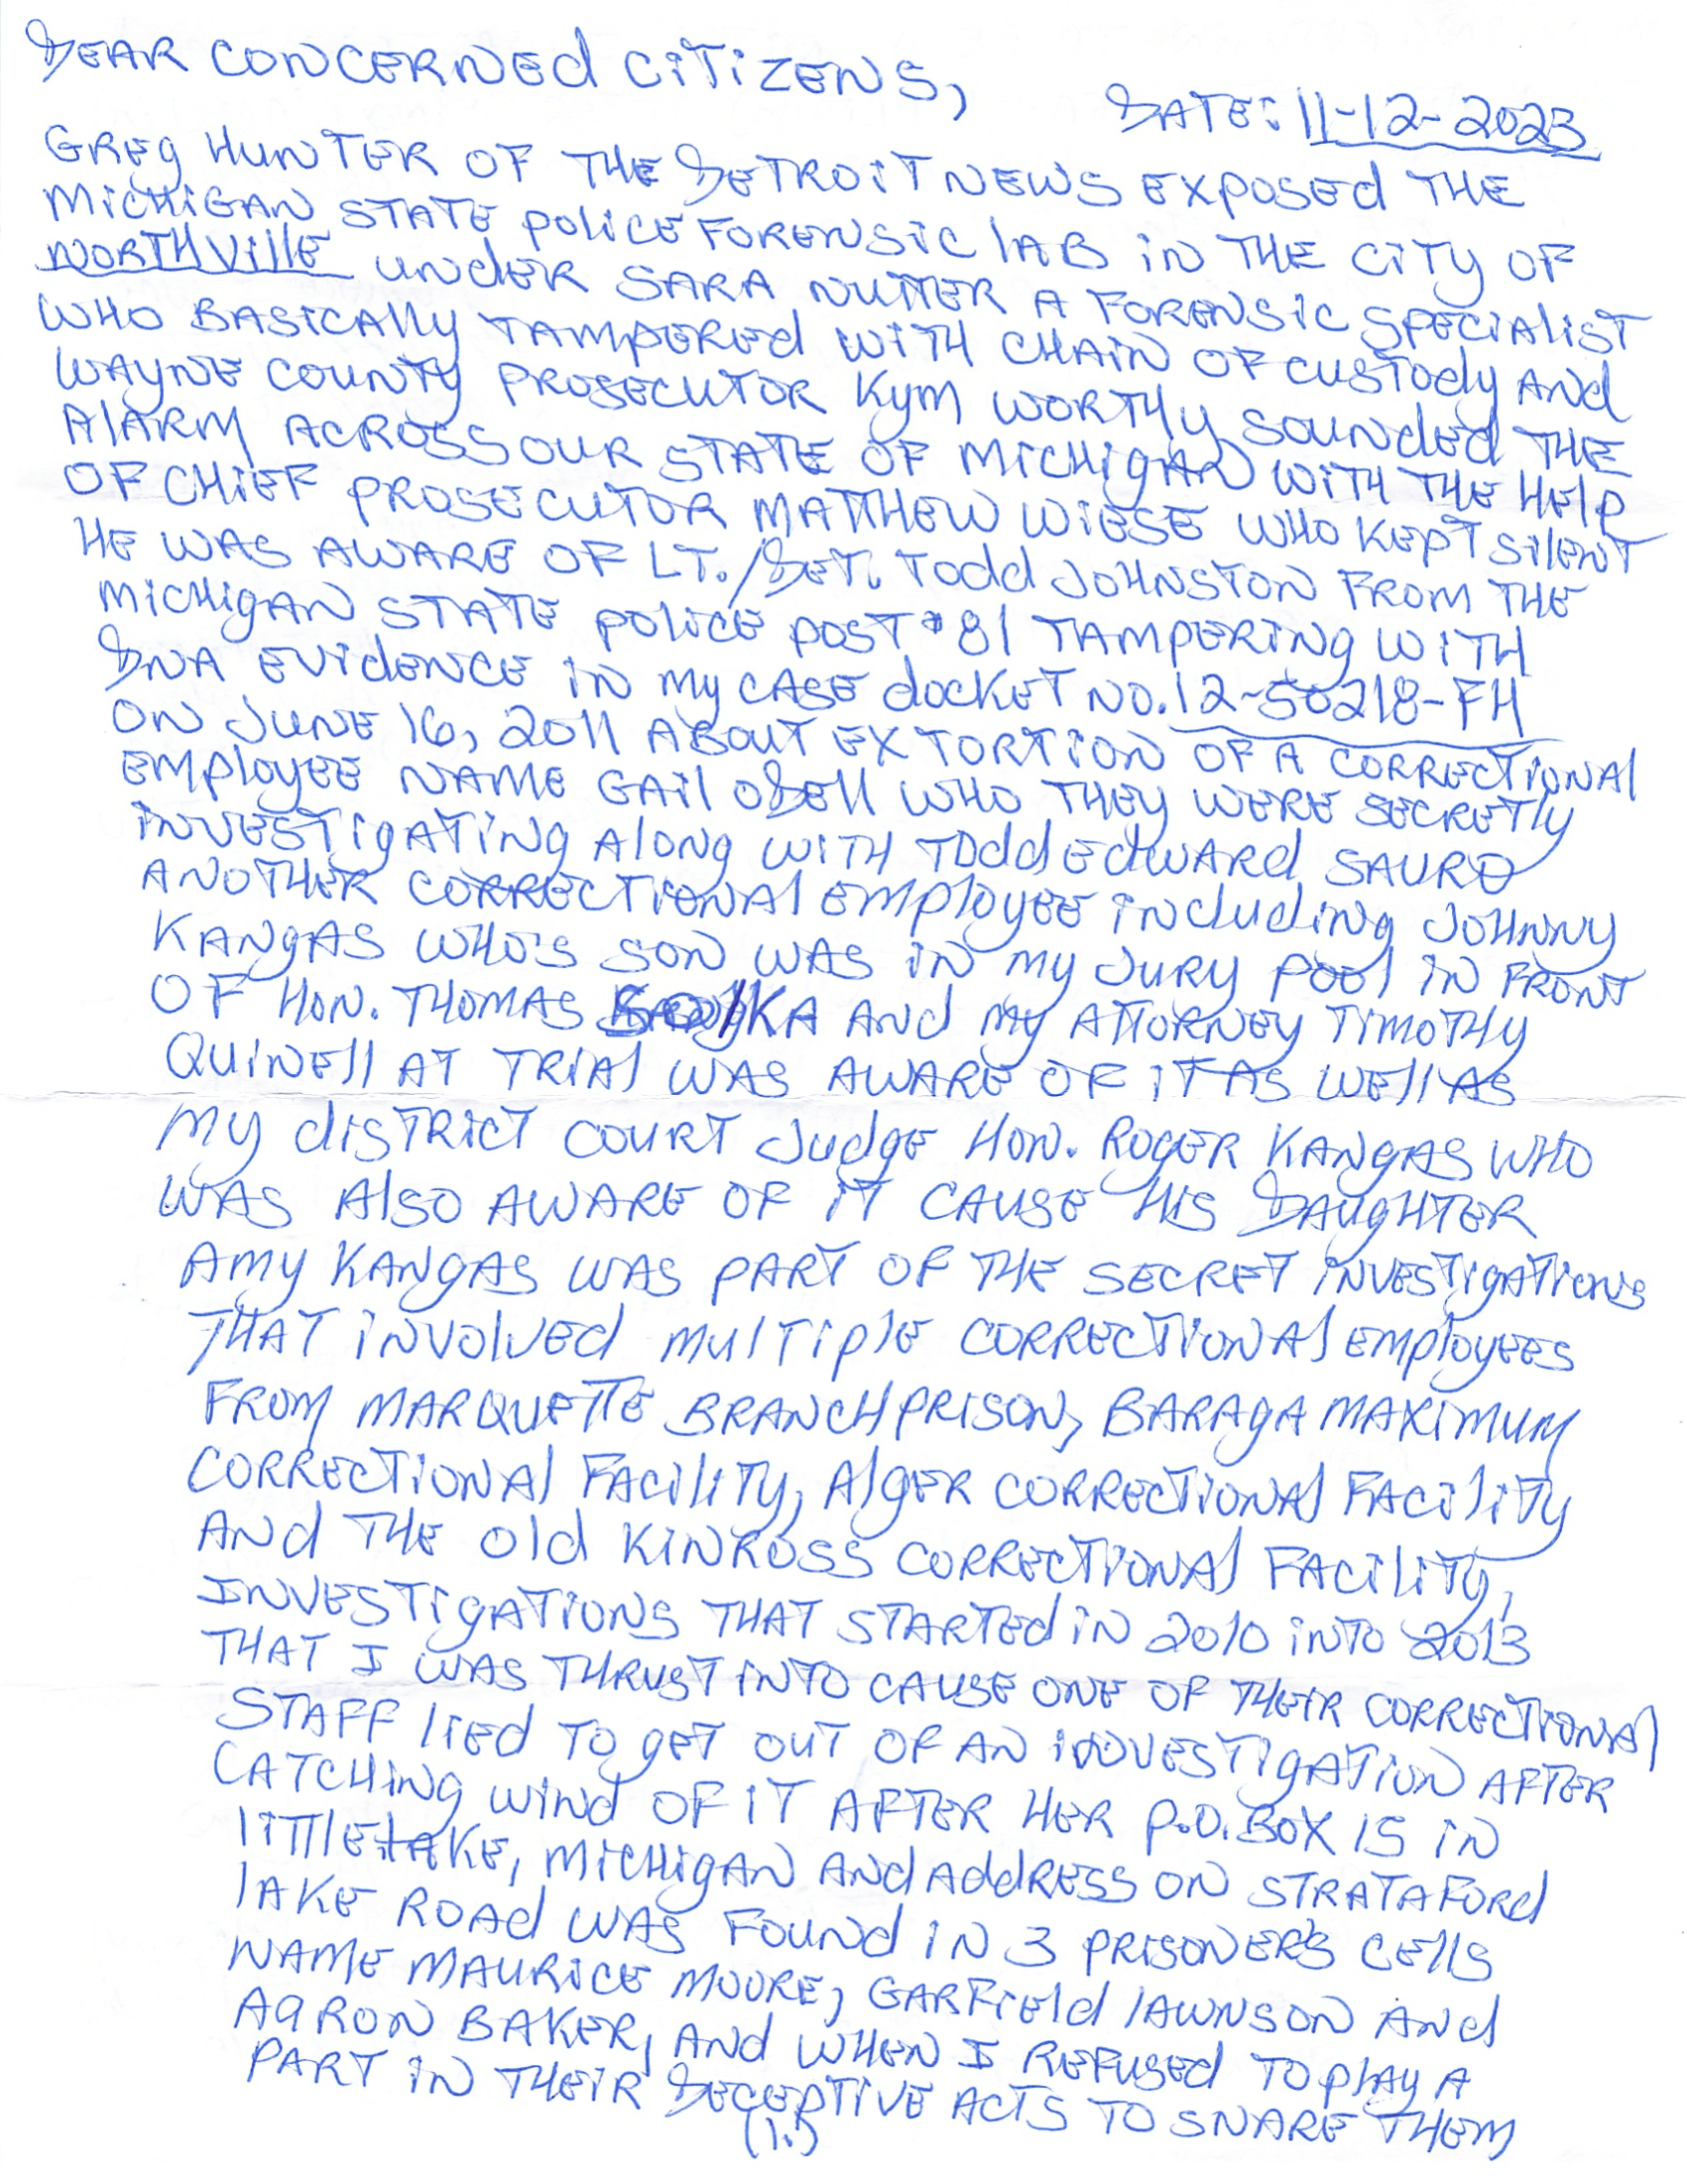 DEAR CONCERNED CITIZENS,
DATE: 11-12-2023
GREG HUNTER OF THE DETROIT NEWS EXPOSED THE
MICHIGAN STATE POLICE FORENSIC LAB IN THE CITY OF
NORTHVILLE UNDER SARA NUTTER A FORENSIC SPECIALIST
WHO BASICALLY TAMPERED WITH CHAIN OF CUSTODY AND
WAYNE COUNTY PROSECUTOR KYM WORTHY SOUNDED THE
ALARM ACROSS OUR STATE OF MICHIGAN WITH THE HELP
OF CHIEF PROSECUTOR MATTHEW WIESE WHO KEPT SILENT
HE WAS AWARE OF LT./DET. TODD JOHNSTON FROM THE
MICHIGAN STATE POLICE POST #81 TAMPERING WITH
DNA EVIDENCE IN MY CASE DOCKET NO. 12-50218-FH
ON JUNE 16, 2011 ABOUT EXTORTION OF A CORRECTIONAL
EMPLOYEE NAME GAIL ODELL WHO THEY WERE SECRETLY
INVESTIGATING ALONG WITH TODD EDWARD SAURO
ANOTHER CORRECTIONAL EMPLOYEE INCLUDING JOHNNY
KANGAS WHO'S SON WAS IN MY JURY POOL IN FRONT
OF HON. THOMAS SOLKA AND MY ATTORNEY TIMOTHY
QUINELL AT TRIAL WAS AWARE OF IT AS WELL AS
MY DISTRICT COURT JUDGE HON. ROGER KANGAS WHO
WAS ALSO AWARE OF IT CAUSE HIS DAUGHTER
AMY KANGAS WAS PART OF THE SECRET INVESTIGATIONS
THAT INVOLVED MULTIPLE CORRECTIONAL EMPLOYEES
FROM MARQUETTE BRANCH PRISON, BARAGA MAXIMUM
CORRECTIONAL FACILITY, ALGER CORRECTIONAL FACILITY
AND THE OLD KINROSS CORRECTIONAL FACILITY,
INVESTIGATIONS THAT STARTED IN 2010 INTO 2013
THAT I WAS THRUST INTO CAUSE ONE OF THEIR CORRECTIONAL
STAFF LIED TO GET OUT OF AN INVESTIGATION AFTER
CATCHING WIND OF IT AFTER HER P.O. BOX IS IN
LITTLE LAKE, MICHIGAN AND ADDRESS ON STRATAFORD
LAKE ROAD WAS FOUND IN 3 PRISONER'S CELLS
NAME MAURICE MOORE, GARFIELD LAWNSON AND
AARON BAKER, AND WHEN I REFUSED TO PLAY A
PART IN THEIR DECEPTIVE ACTS TO SNARE THEM
(1.)